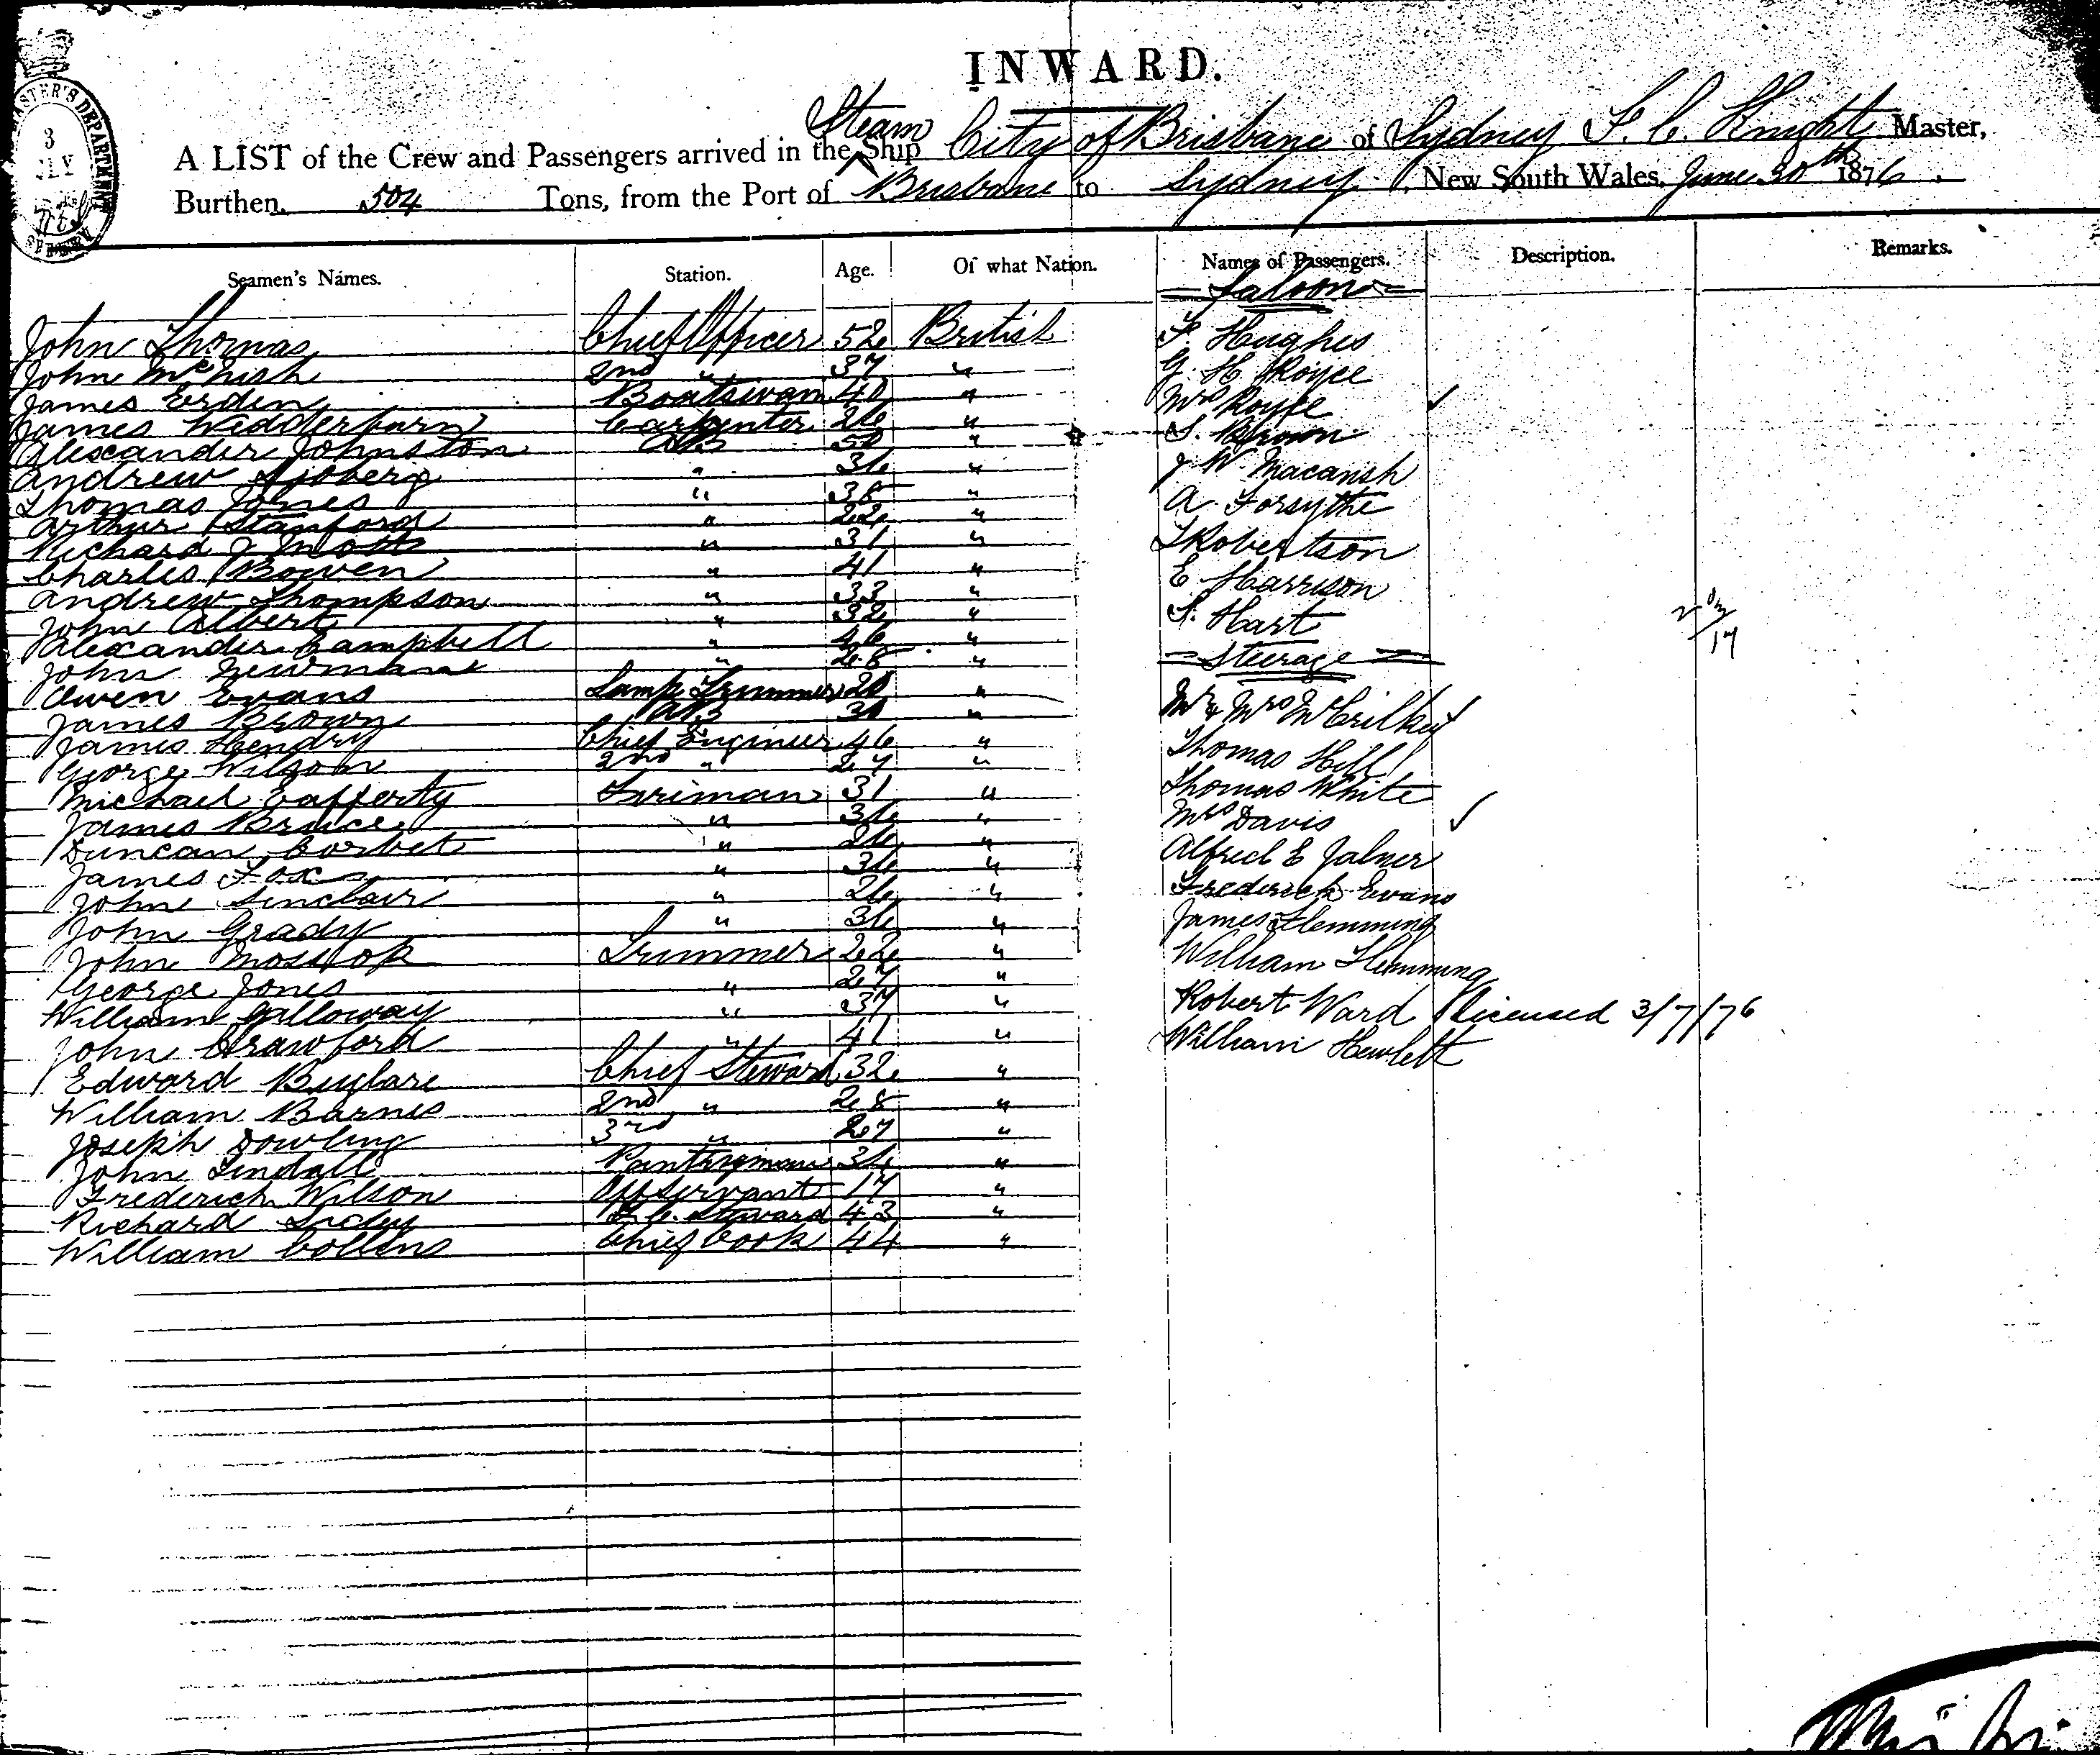 INWARD.
A LIST of the Crew and Passengers arrived in the Steam Ship City of Brisbane of Sydney F. C. Knight Master,
Burthen 504 Tons, from the Port of Brisbane to Sydney, New South Wales, June 30th 1876.
Seamen's Names. Station. Age. Of what Nation. Names of Passengers. Description. Remarks.
= Saloon =
John Thomas Chief Officer 52 British F. Hughes
John McNish 2nd " 37 " G. H. Royce
James Erden Boatswan 40 " Mrs Royce ✓
James Wedderburn Carpenter 26 " S. Brown
Alexander Johnston AB 50 " J W Macansh
Andrew Sjoberg " 36 " A Forsythe
Thomas Jones " 38 " T Robertson
Arthur Stanford " 22 " E Harrison
Richard J Mott " 31 " S. Hart
Charles Bowen " 41 "
Andrew Thompson " 33 "
John Albert " 32 "
Alexander Campbell " 46 "
John Newman " 28 " = Steerage =
Owen Evans Lamp Trimmer 20 " Mr & Mrs
James Brown AB 30 " Thomas Hill
James Hendry Chief Engineer 46 " Thomas White
George Wilson 2nd " 27 " Mrs Davis ✓
Michael Cafferty Firiman 31 " Alfred E
James Bruce " 36 " Frederick Evans
Duncan Corbet " 26 " James Flemming
James Fox " 36 " William Flemming
John Sinclair " 26 " Robert Ward Licensed 3/7/76
John Grady " 36 " William Hewlett
John Mossop Trimmer 22 "
George Jones " 27 "
William Galloway " 37 "
John Crawford " 41 "
Edward Buglare Chief Steward 32 "
William Barnes 2nd " 28 "
Joseph Dowling 3rd " 27 "
John Lindall Pantryman 34 "
Frederick Wilson Off Servant 17 "
Richard F. C. Steward 43 "
William Collins Chief Cook 44 "